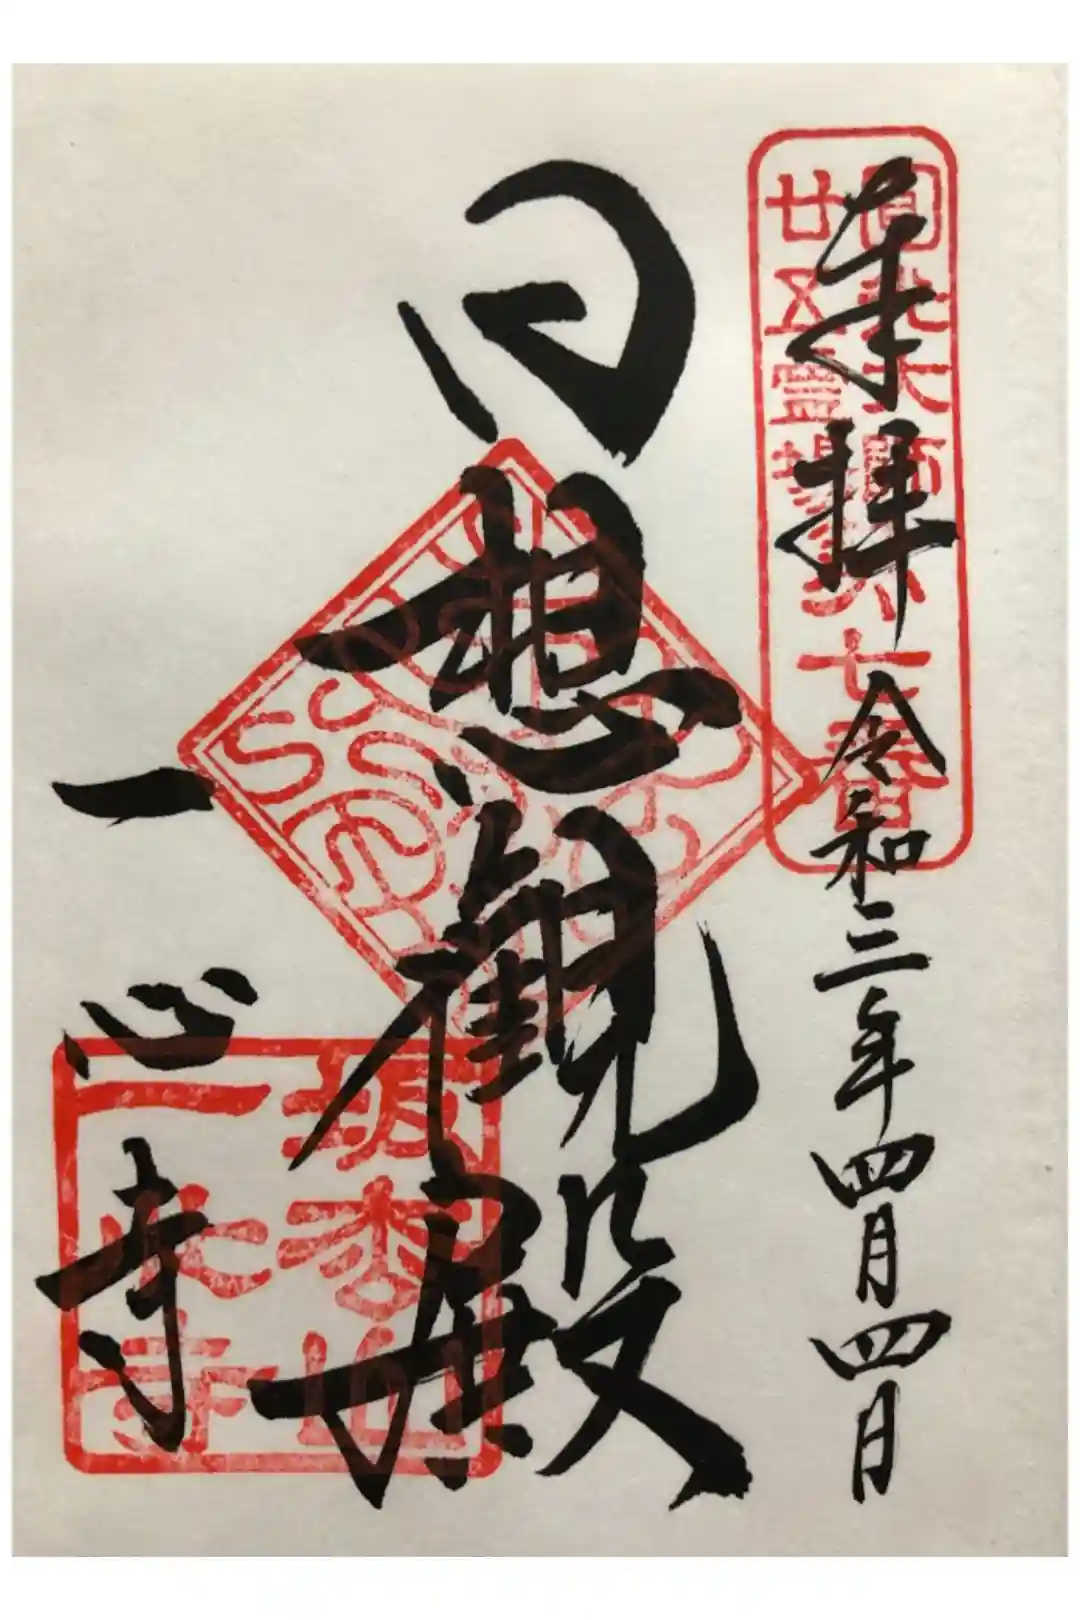 奉拝 令和三年四月四日
圓光大師
廿五霊場第七番
日想観殿
一心寺
坂松山
一心寺